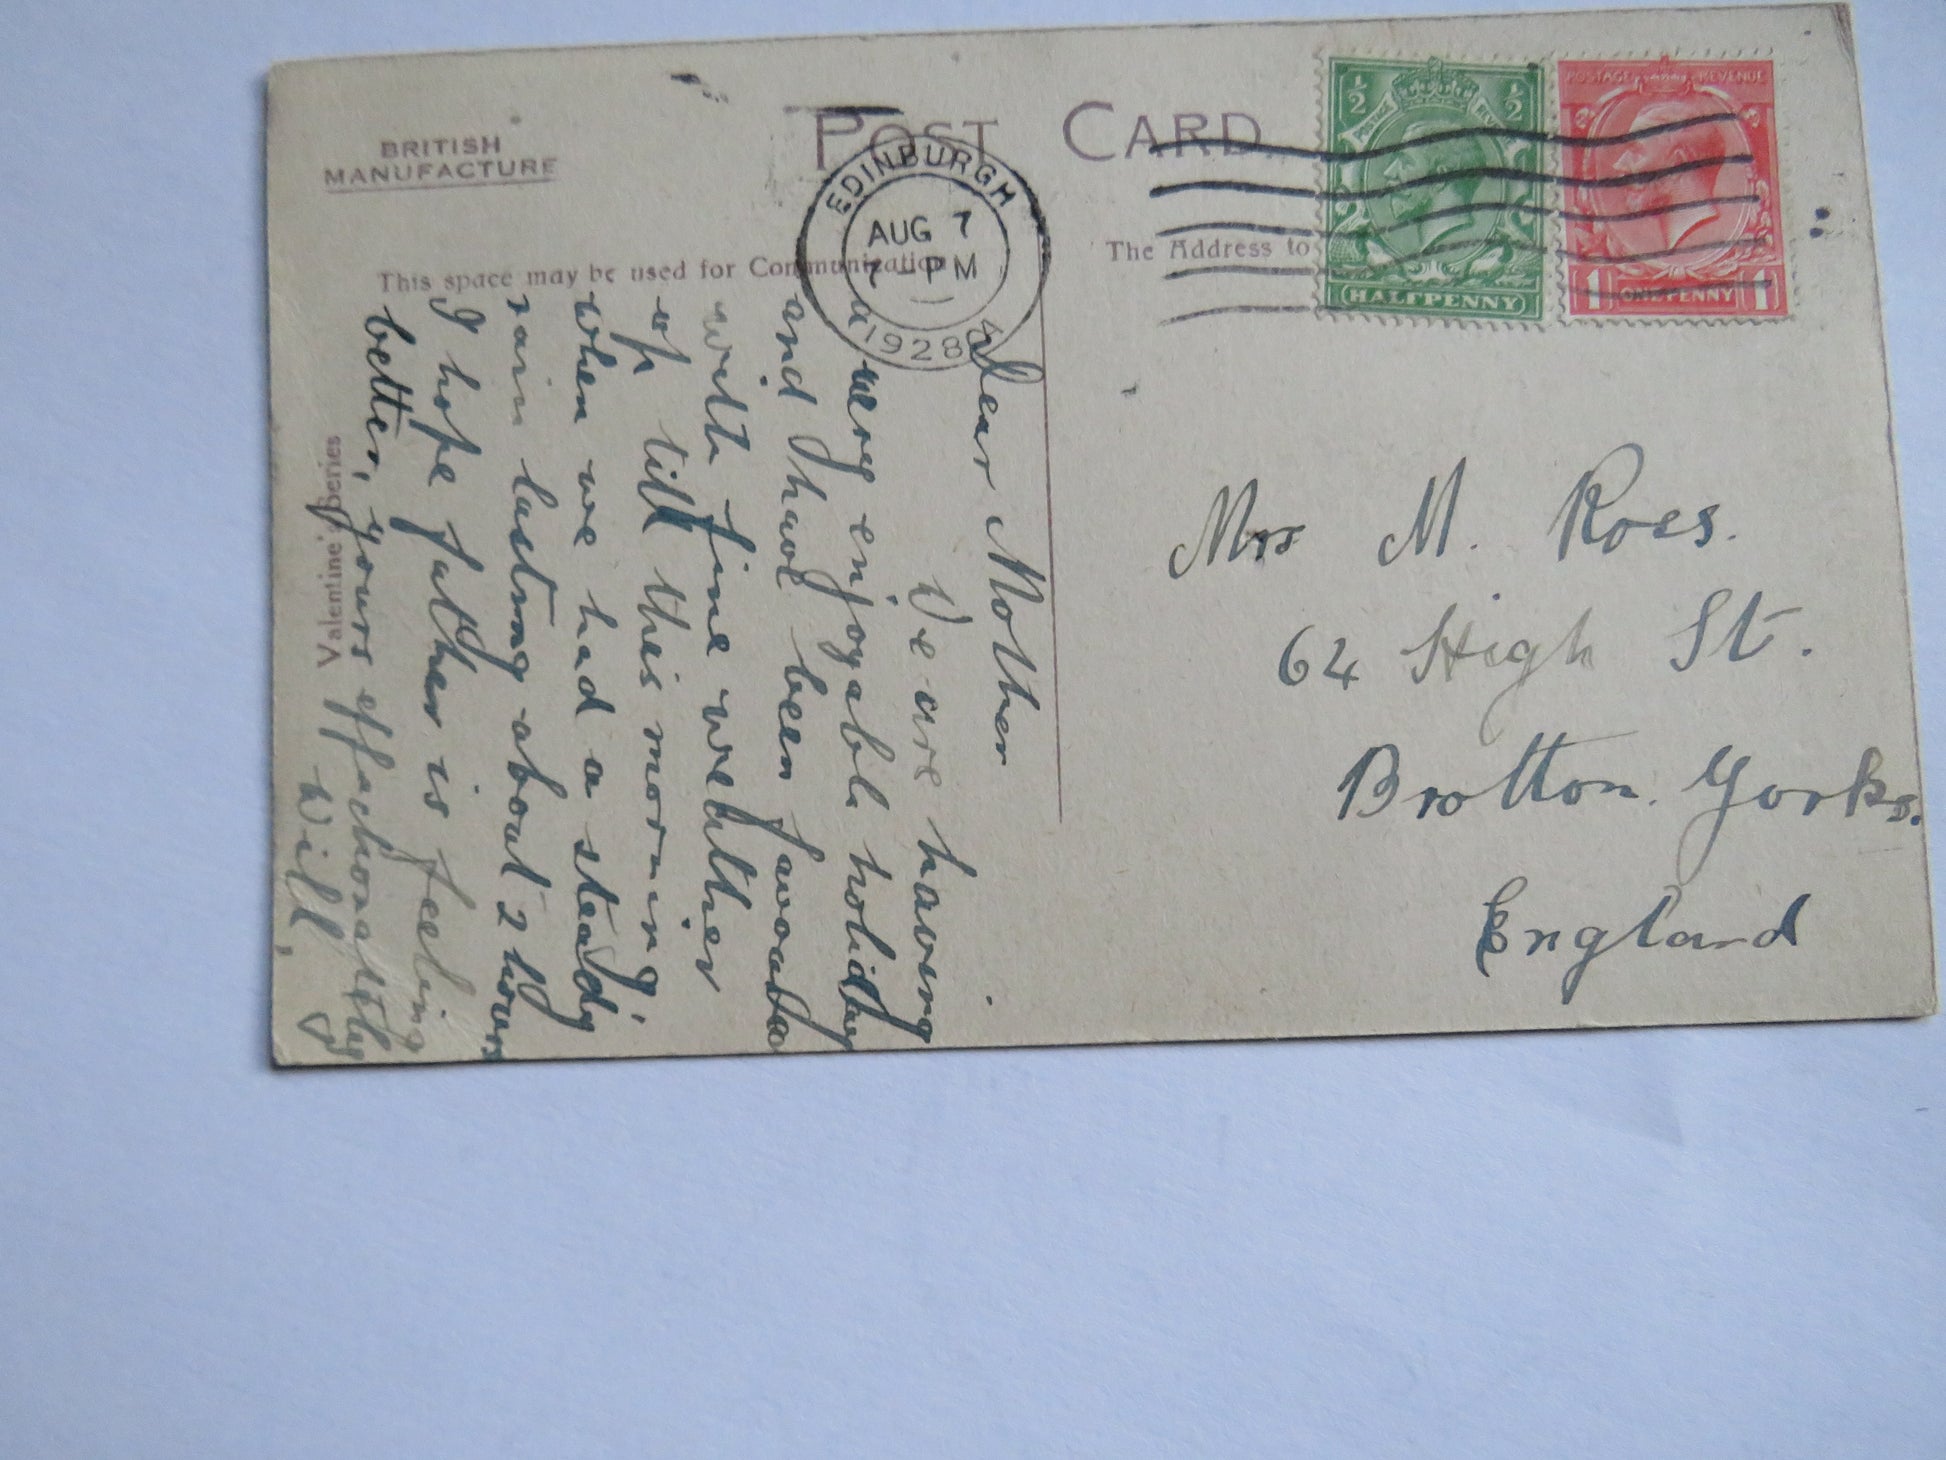 BRITISH
MANUFACTURE
POST CARD
This space may be used for Communication
The Address to
EDINBURGH
AUG 7
7 - PM
1928
½ ½
HALFPENNY
POSTAGE REVENUE
1 ONE PENNY 1
Valentine's Series
Dear Mother
We are having
a very enjoyable holiday
and have been favoured
with fine weather
up till this morning,
when we had a steady
rain lasting about 2 hours
I hope father is feeling
better, yours affectionately
Will.
Mrs M. Ross.
64 High St.
Brotton. Yorks.
England